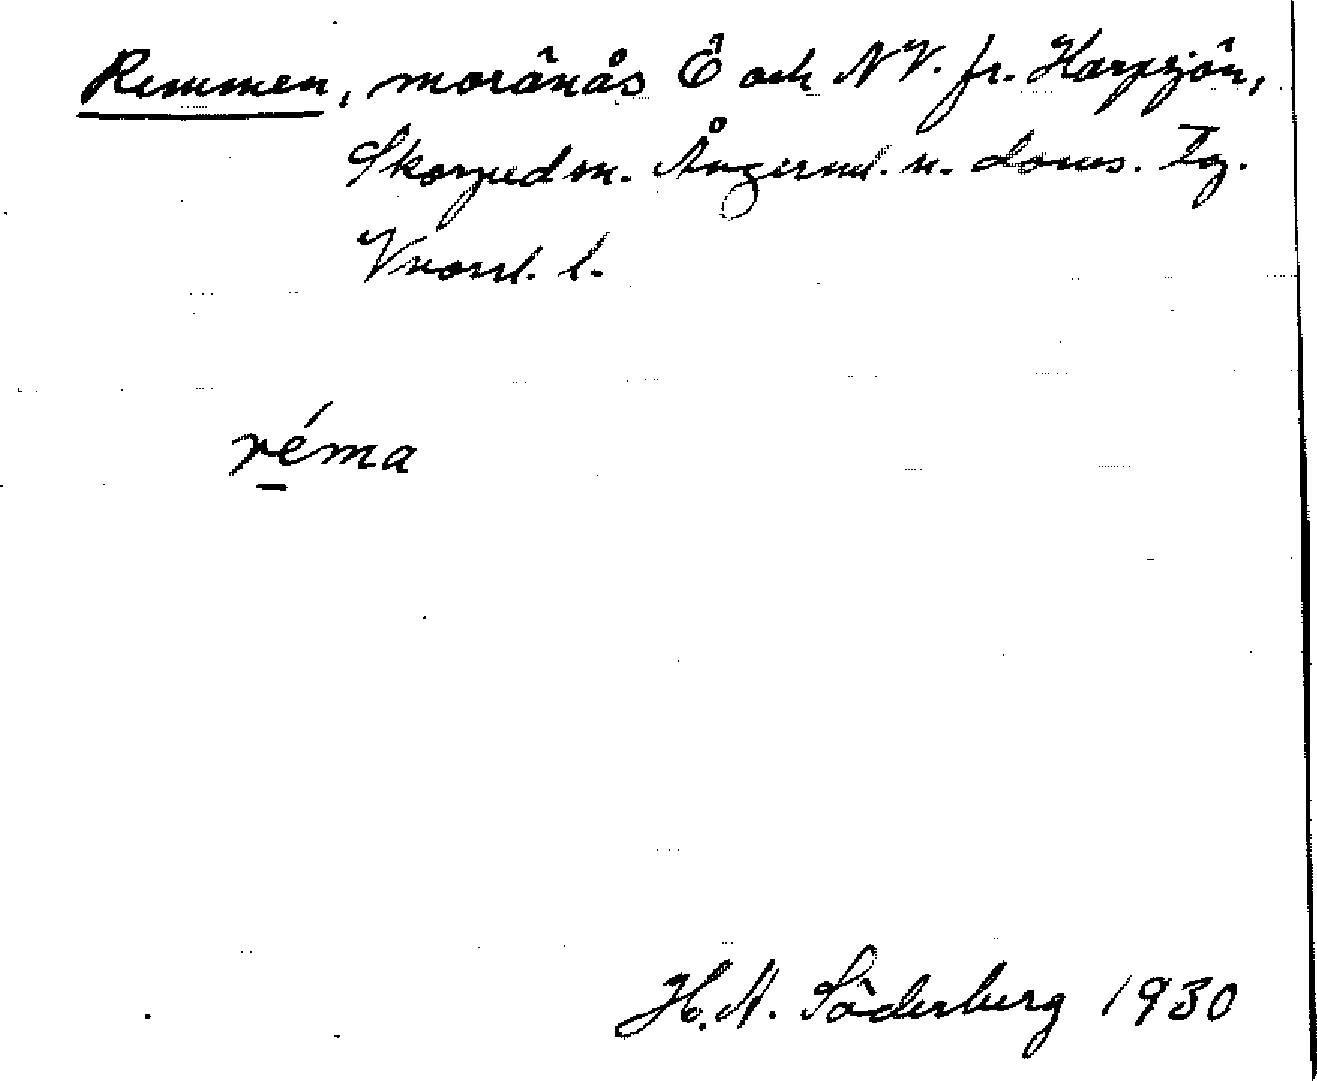 Remmen, moränås Ö och NV. fr. Harpsjön,
Skorpedm. Ångerml. n. doms. Tg.
Vnorrl. l.
réma
H. A. Söderberg 1930